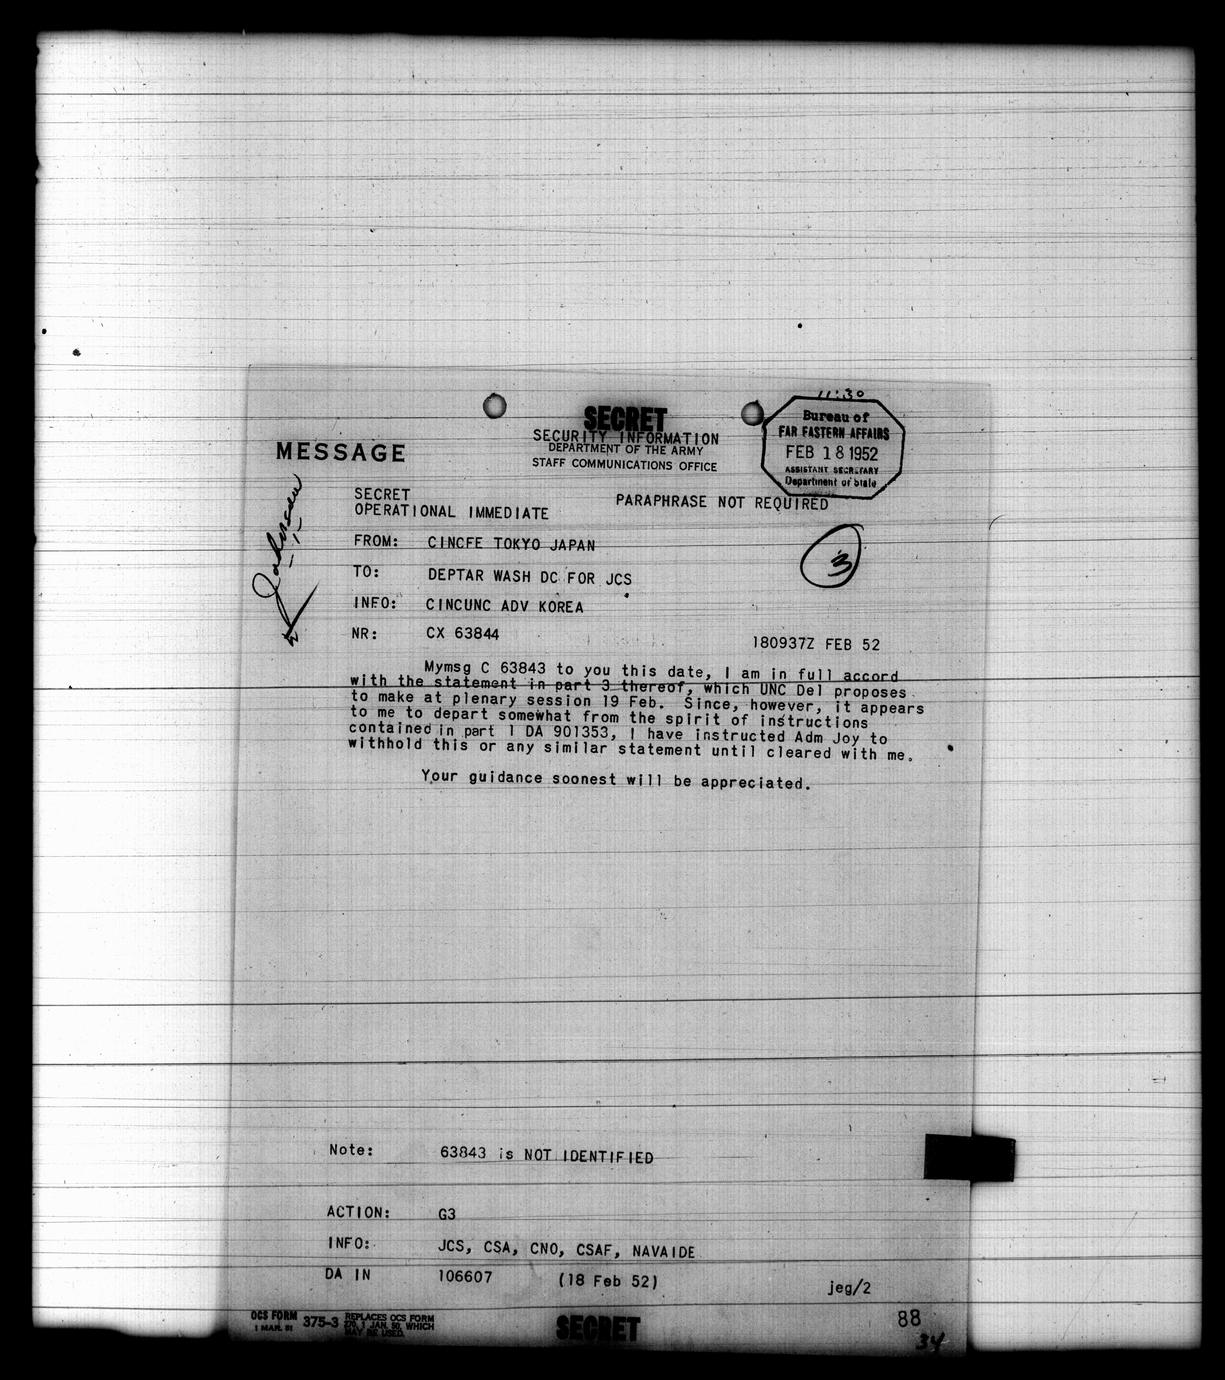 11:30
SECRET
SECURITY INFORMATION
DEPARTMENT OF THE ARMY
STAFF COMMUNICATIONS OFFICE
MESSAGE
Bureau of
FAR EASTERN AFFAIRS
FEB 18 1952
ASSISTANT SECRETARY
Department of State
Johnson
SECRET
OPERATIONAL IMMEDIATE
PARAPHRASE NOT REQUIRED
3
FROM: CINCFE TOKYO JAPAN
TO: DEPTAR WASH DC FOR JCS
INFO: CINCUNC ADV KOREA
NR: CX 63844
180937Z FEB 52
Mymsg C 63843 to you this date, I am in full accord
with the statement in part 3 thereof, which UNC Del proposes
to make at plenary session 19 Feb. Since, however, it appears
to me to depart somewhat from the spirit of instructions
contained in part 1 DA 901353, I have instructed Adm Joy to
withhold this or any similar statement until cleared with me.
Your guidance soonest will be appreciated.
Note: 63843 is NOT IDENTIFIED
ACTION: G3
INFO: JCS, CSA, CNO, CSAF, NAVAIDE
DA IN 106607 (18 Feb 52)
jeg/2
OCS FORM 375-3 REPLACES OCS FORM
1 MAR. 51
1 JAN. 50, WHICH
MAY BE USED.
SECRET
88
34